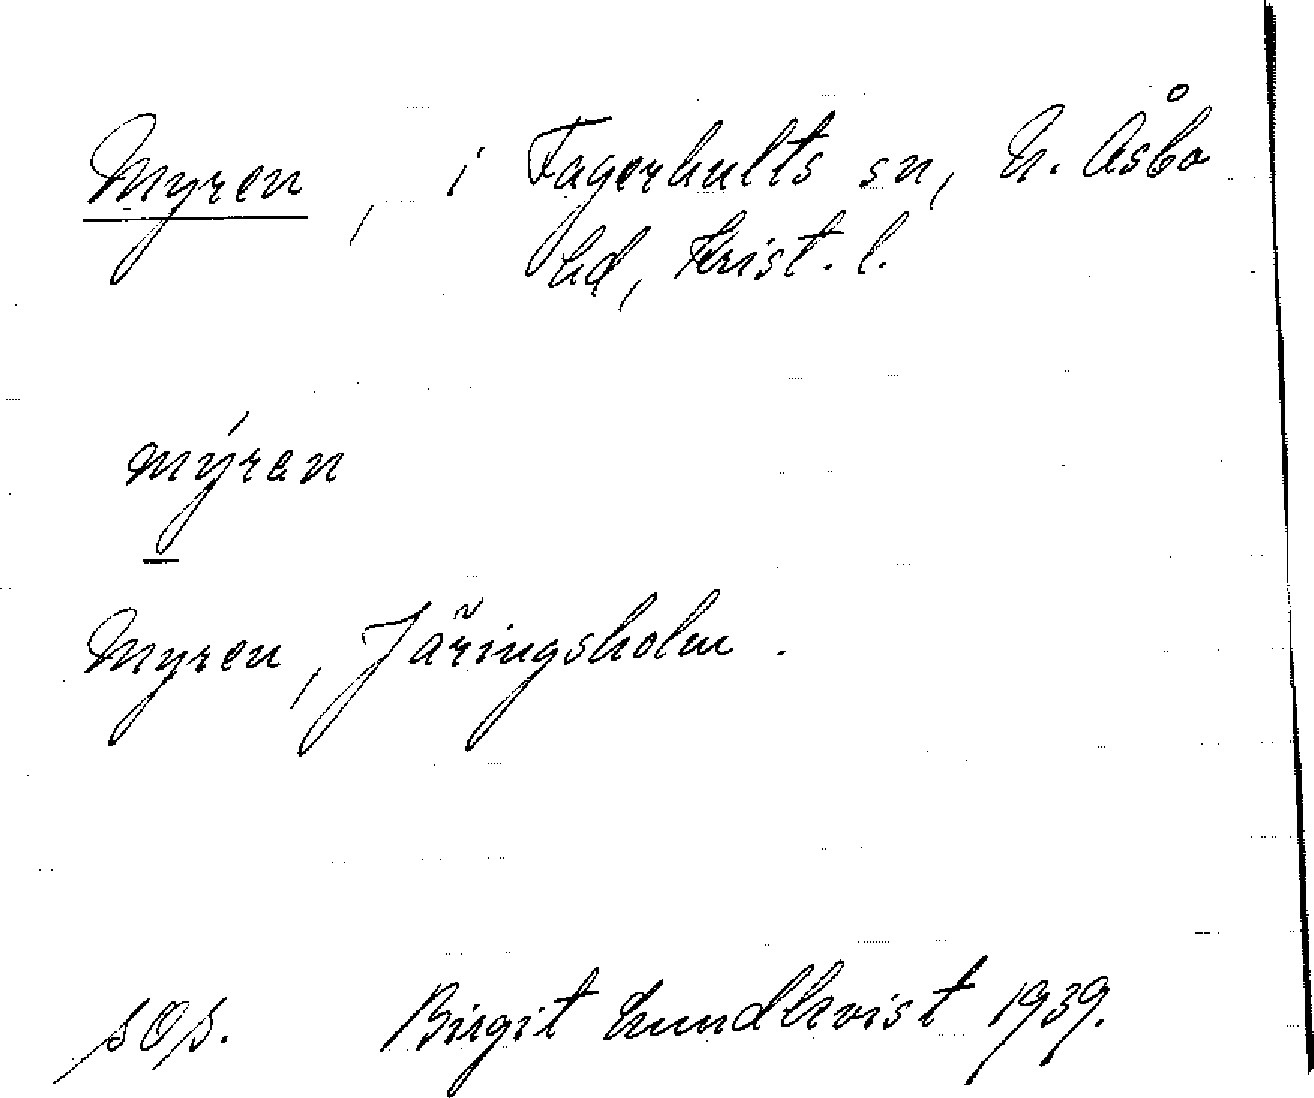 Myren, i Fagerhults sn, N. Åsbo
hd, Krist. l.
mýran
Myren, Järingsholm.
Birgit Lundkvist 1939.